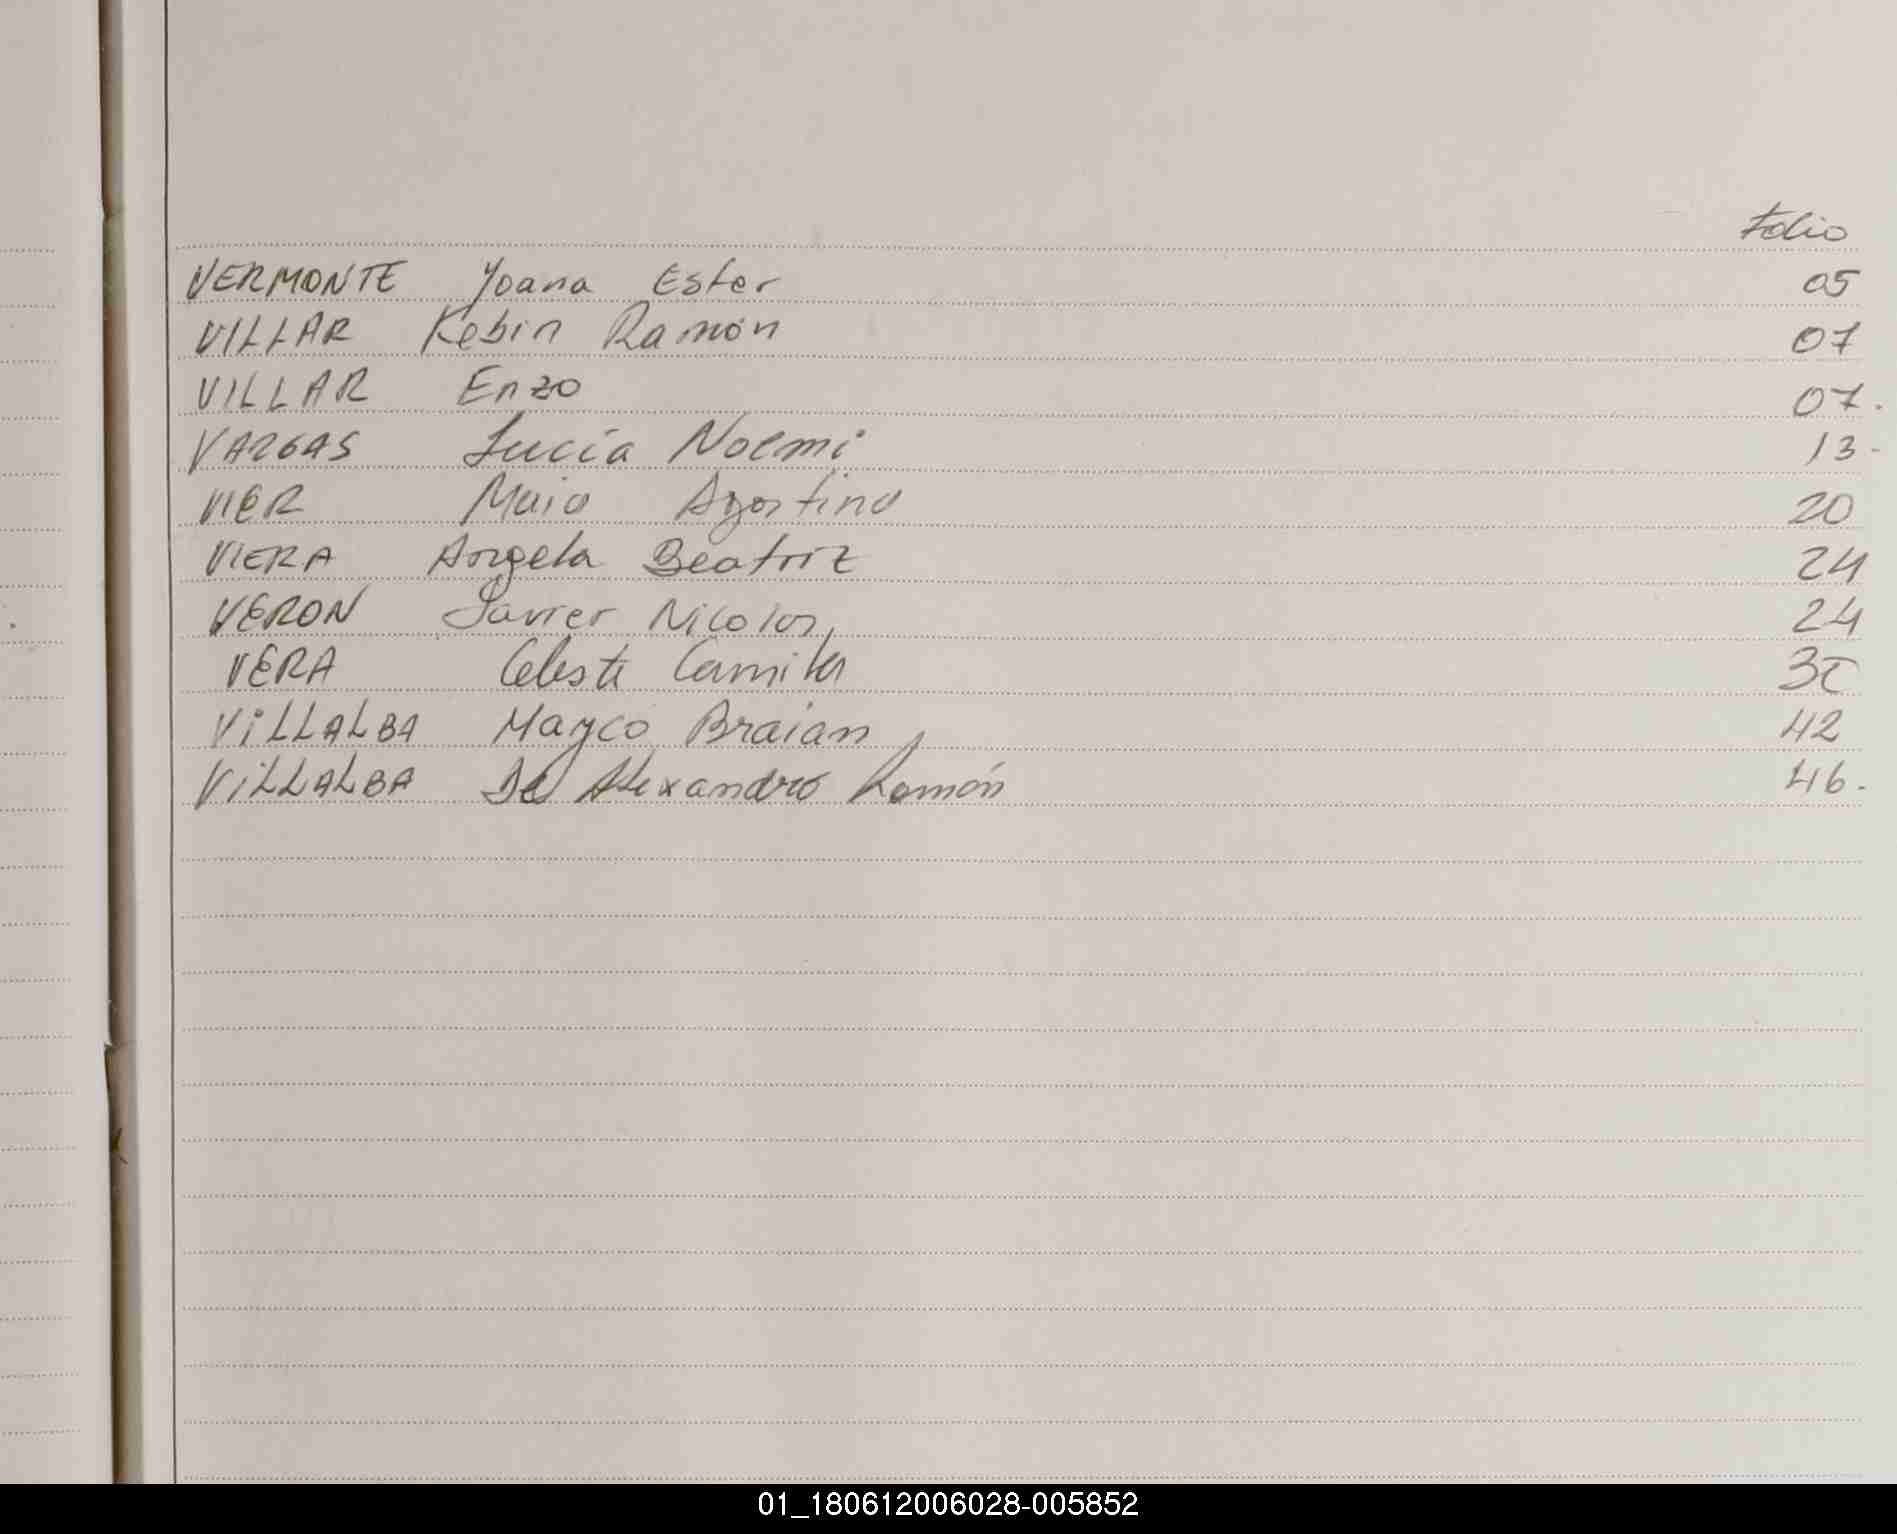 Folio
VERMONTE Yoana Ester 05
VILLAR Kebin Ramón 07
VILLAR Enzo 07.
VARGAS Lucía Noemi 13-
VIER Maia Agostina 20
VIERA Angela Beatriz 24
VERON Javier Nicolas 24
VERA Celeste Camila
VILLALBA Mayco Braian 42
VILLALBA Alexandro Ramón 46.
01_180612006028-005852